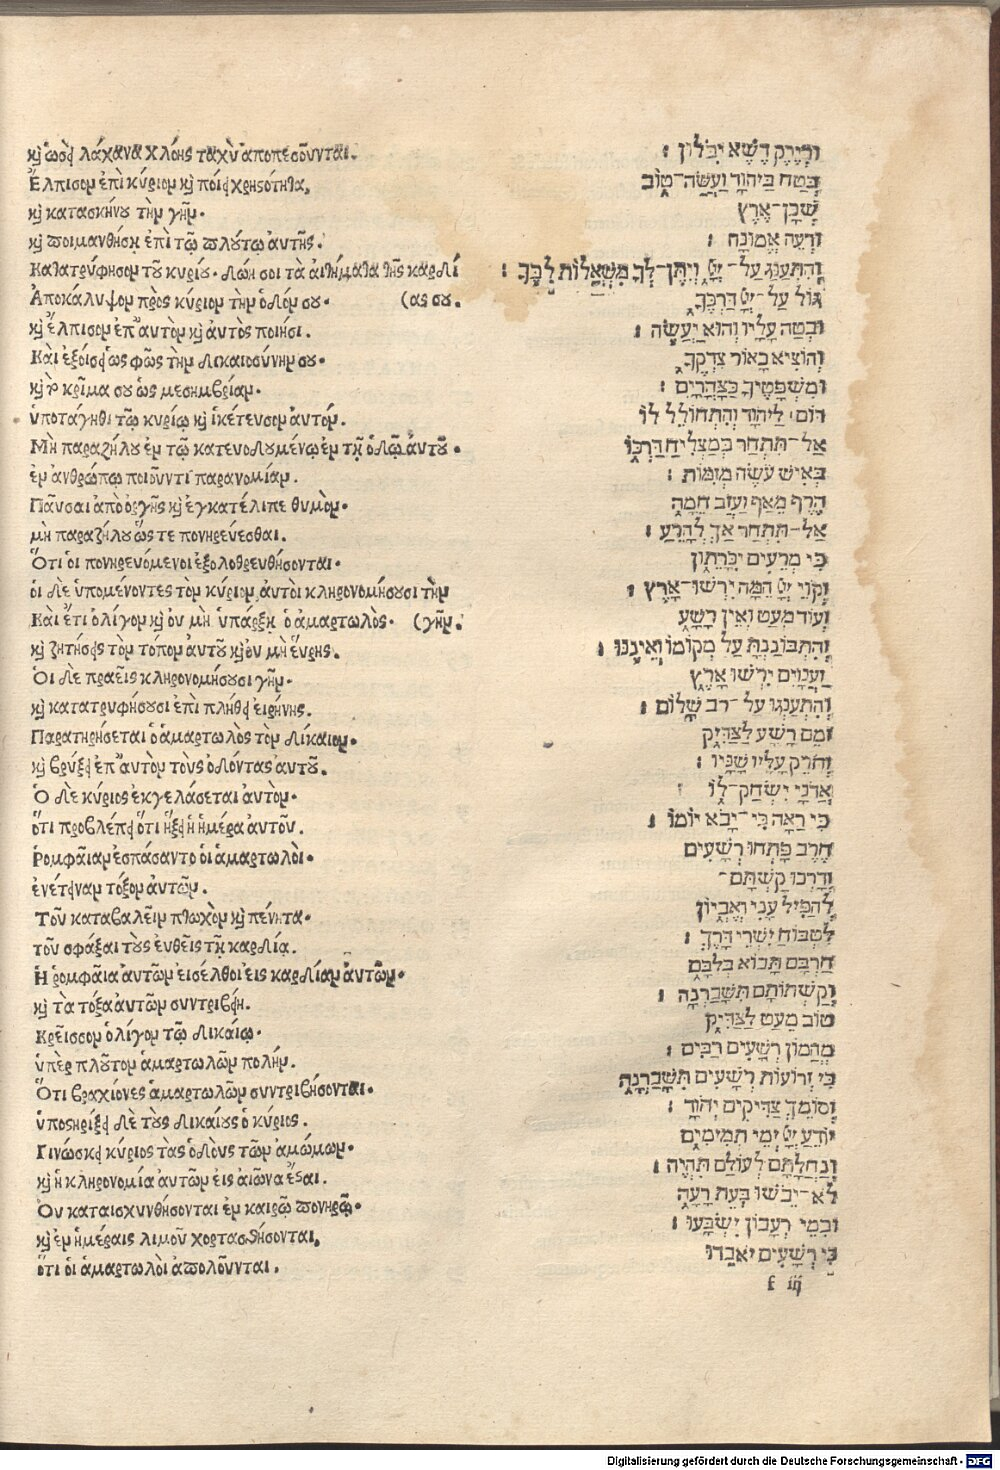 κ̀ ὡσεὶ λάχανα χλόης ταχὺ ἀποπεσοῦνται.
Ἔλπισον ἐπὶ κύριον κ̀ ποίει χρηστότητα,
κ̀ κατασκήνου τὴν γῆν.
κ̀ ποιμανθήσῃ ἐπὶ τῷ πλούτῳ αὐτῆς.
Κατατρύφησον τοῦ κυρίου. δώη σοι τὰ αἰτήματα τῆς καρδί
Ἀποκάλυψον πρὸς κύριον τὴν ὁδόν σου. (ας σου.
κ̀ ἔλπισον ἐπ' αὐτὸν κ̀ αὐτὸς ποιήσι.
Καὶ ἐξοίσει ὡς φῶς τὴν δικαιοσύνην σου.
κ̀ τὸ κρῖμα σου ὡς μεσημβρίαν.
ὑποτάγηθι τῷ κυρίῳ κ̀ ἱκέτευσον αὐτόν.
Μὴ παραζήλου ἐν τῷ κατευοδουμένῳ ἐν τῇ ὁδῷ αὐτοῦ.
ἐν ἀνθρώπῳ ποιοῦντι παρανομίαν.
Παῦσαι ἀπὸ ὀργῆς κ̀ ἐγκατέλιπε θυμόν.
μὴ παραζήλου ὥς τε πονηρεύεσθαι.
Ὅτι οἱ πονηρευόμενοι ἐξολοθρευθήσονται.
οἱ δὲ ὑπομένοντες τὸν κύριον, αὐτοὶ κληρονομήσουσι τὴν
Καὶ ἔτι ὀλίγον κ̀ οὐ μὴ ὑπάρξῃ ὁ ἁμαρτωλός. (γῆν.
κ̀ ζητήσεις τὸν τόπον αὐτοῦ κ̀ οὐ μὴ εὕρῃς.
Οἱ δὲ πραεῖς κληρονομήσουσι γῆν.
κ̀ κατατρυφήσουσι ἐπὶ πλήθει εἰρήνης.
Παρατηρήσεται ὁ ἁμαρτωλὸς τὸν δίκαιον.
κ̀ βρύξει ἐπ' αὐτὸν τοὺς ὀδόντας αὐτοῦ.
Ὁ δὲ κύριος ἐκγελάσεται αὐτόν.
ὅτι προβλέπει ὅτι ἥξει ἡ ἡμέρα αὐτοῦ.
Ῥομφαίαν ἐσπάσαντο οἱ ἁμαρτωλοί.
ἐνέτειναν τόξον αὐτῶν.
Τοῦ καταβαλεῖν πτωχὸν κ̀ πένητα.
τοῦ σφάξαι τοὺς εὐθεῖς τῇ καρδίᾳ.
Ἡ ῥομφαία αὐτῶν εἰσέλθοι εἰς καρδίαν αὐτῶν.
κ̀ τὰ τόξα αὐτῶν συντριβείη.
Κρεῖσσον ὀλίγον τῷ δικαίῳ.
ὑπὲρ πλοῦτον ἁμαρτωλῶν πολήν.
Ὅτι βραχίονες ἁμαρτωλῶν συντριβήσονται.
ὑποστηρίξει δὲ τοὺς δικαίους ὁ κύριος.
Γινώσκει κύριος τὰς ὁδοὺς τῶν ἀμώμων.
κ̀ ἡ κληρονομία αὐτῶν εἰς αἰῶνα ἔσται.
Οὐ καταισχυνθήσονται ἐν καιρῷ πονηρῷ.
κ̀ ἐν ἡμέραις λιμοῦ χορτασθήσονται,
ὅτι οἱ ἁμαρτωλοὶ ἀπολοῦνται.
וּכְיֶרֶק דֶּשֶׁא יִבֹּלוּן :
בְּטַח בַּיהוָֹה וַעֲשֵׂה־טוֹב
שְׁכָן־אֶרֶץ
וּרְעֵה אֱמוּנָה :
וְהִתְעַנַּג עַל־יְיָ וְיִתֶּן־לְךָ מִשְׁאֲלוֹת לִבֶּךָ :
גּוֹל עַל־יְיָ דַּרְכֶּךָ
וּבְטַח עָלָיו וְהוּא יַעֲשֶׂה :
וְהוֹצִיא כָאוֹר צִדְקֶךָ
וּמִשְׁפָּטֶיךָ כַּצָּהֳרָיִם :
דּוֹם לַיהוָֹה וְהִתְחוֹלֵל לוֹ
אַל־תִּתְחַר בְּמַצְלִיחַ דַּרְכּוֹ
בְּאִישׁ עֹשֶׂה מְזִמּוֹת :
הֶרֶף מֵאַף וַעֲזֹב חֵמָה
אַל־תִּתְחַר אַךְ לְהָרֵעַ :
כִּי מְרֵעִים יִכָּרֵתוּן
וְקוֵֹי יְיָ הֵמָּה יִרְשׁוּ־אָרֶץ :
וְעוֹד מְעַט וְאֵין רָשָׁע
וְהִתְבּוֹנַנְתָּ עַל מְקוֹמוֹ וְאֵינֶנּוּ :
וַעֲנָוִים יִרְשׁוּ אָרֶץ
וְהִתְעַנְּגוּ עַל־רֹב שָׁלוֹם :
זֹמֵם רָשָׁע לַצַּדִּיק
וְחֹרֵק עָלָיו שִׁנָּיו :
אֲדֹנָי יִשְׂחַק־לוֹ
כִּי רָאָה כִּי־יָבֹא יוֹמוֹ :
חֶרֶב פָּתְחוּ רְשָׁעִים
וְדָרְכוּ קַשְׁתָּם־
לְהַפִּיל עָנִי וְאֶבְיוֹן
לִטְבוֹחַ יִשְׁרֵי דָרֶךְ :
חַרְבָּם תָּבוֹא בְלִבָּם
וְקַשְּׁתוֹתָם תִּשָּׁבַרְנָה :
טוֹב מְעַט לַצַּדִּיק
מֵהֲמוֹן רְשָׁעִים רַבִּים :
כִּי זְרוֹעוֹת רְשָׁעִים תִּשָּׁבַרְנָה
וְסוֹמֵךְ צַדִּיקִים יְהוָֹה :
יוֹדֵעַ יְיָ יְמֵי תְמִימִים
וְנַחֲלָתָם לְעוֹלָם תִּהְיֶה :
לֹא־יֵבֹשׁוּ בְּעֵת רָעָה
וּבִמֵי רְעָבוֹן יִשְׂבָּעוּ :
כִּי רְשָׁעִים יֹאבֵדוּ
f iij
Digitalisierung gefördert durch die Deutsche Forschungsgemeinschaft - DFG